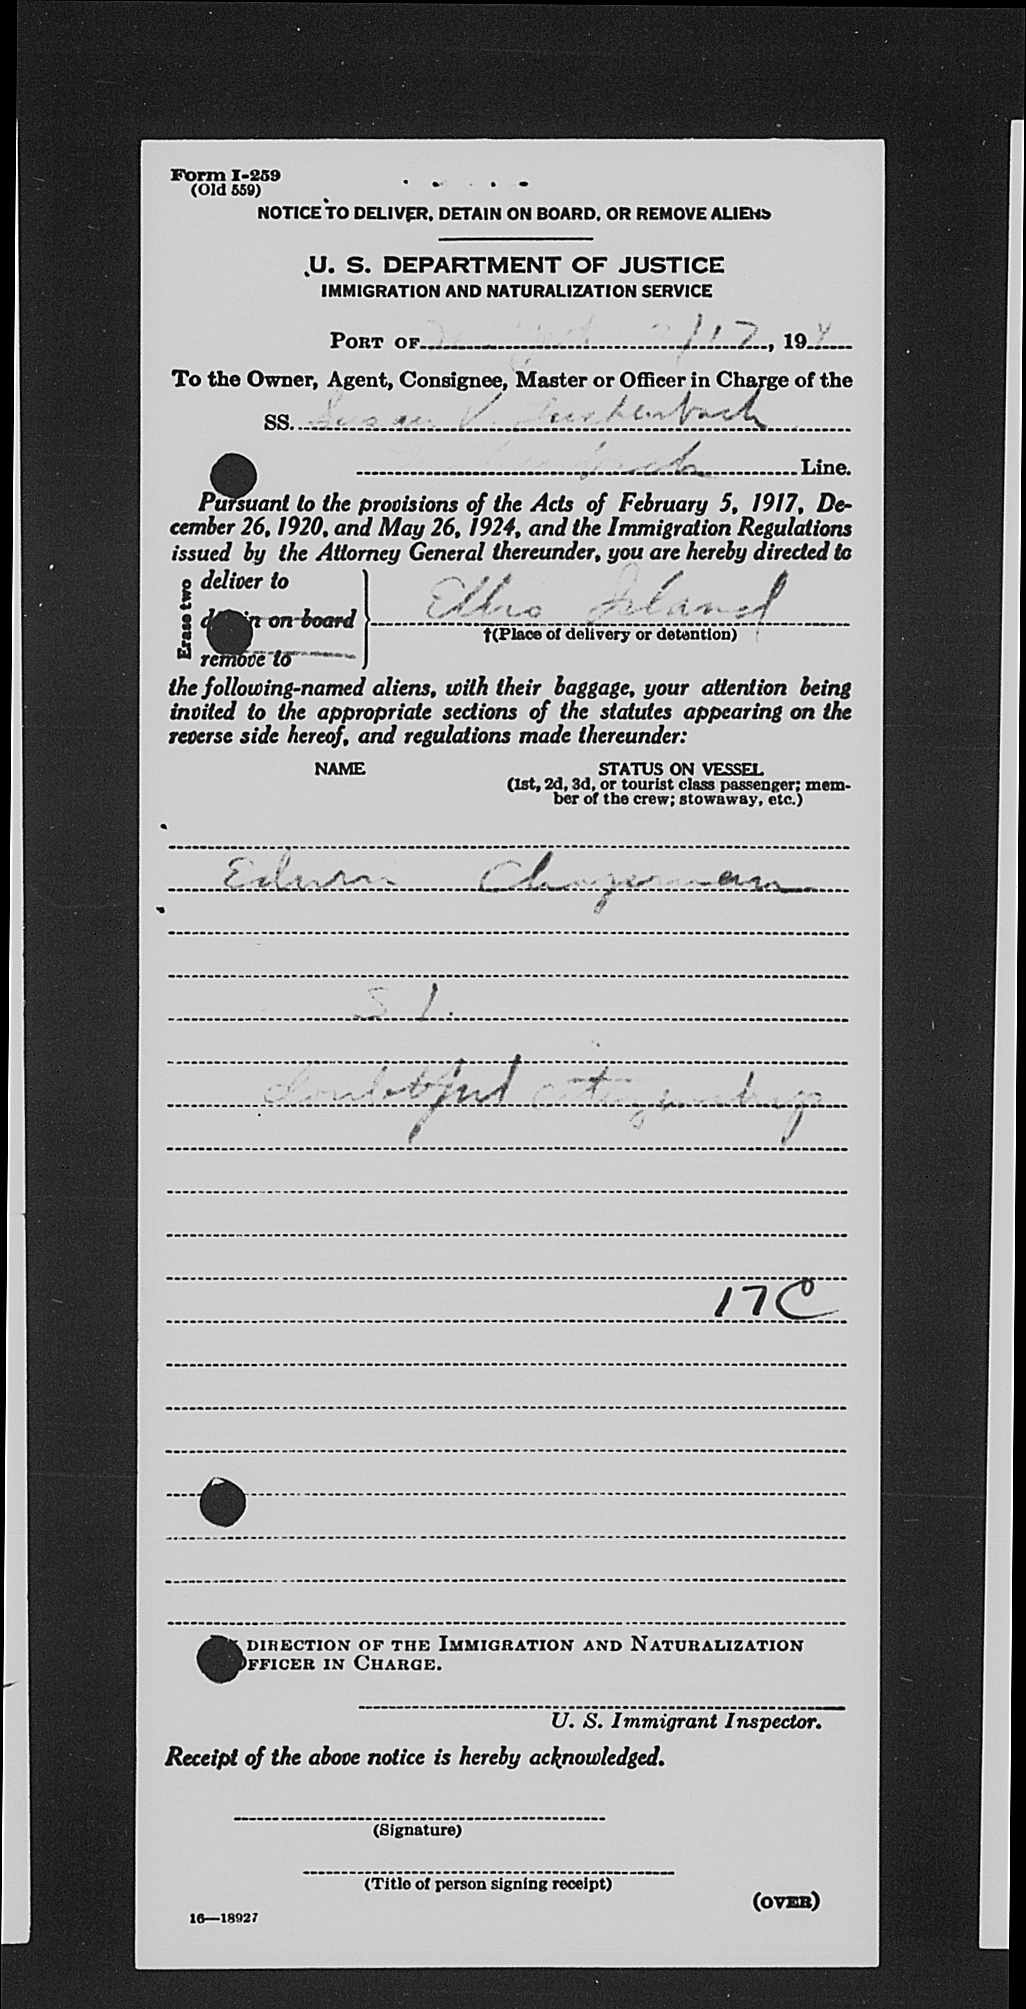 Form I-259
(Old 559)
NOTICE TO DELIVER, DETAIN ON BOARD, OR REMOVE ALIENS
U. S. DEPARTMENT OF JUSTICE
IMMIGRATION AND NATURALIZATION SERVICE
PORT OF /17, 194
To the Owner, Agent, Consignee, Master or Officer in Charge of the
SS. Susan V. Luckenbach
Luckenbach Line.
Pursuant to the provisions of the Acts of February 5, 1917, De-
cember 26, 1920, and May 26, 1924, and the Immigration Regulations
issued by the Attorney General thereunder, you are hereby directed to
Erase two
deliver to
detain on board
remove to
Ellis Island
†(Place of delivery or detention)
the following-named aliens, with their baggage, your attention being
invited to the appropriate sections of the statutes appearing on the
reverse side hereof, and regulations made thereunder:
NAME STATUS ON VESSEL
(1st, 2d, 3d, or tourist class passenger; mem-
ber of the crew; stowaway, etc.)
Edwin
S I.
doubtful citizenship
17C
DIRECTION OF THE IMMIGRATION AND NATURALIZATION
OFFICER IN CHARGE.
U. S. Immigrant Inspector.
Receipt of the above notice is hereby acknowledged.
(Signature)
(Title of person signing receipt)
(OVER)
16—18927